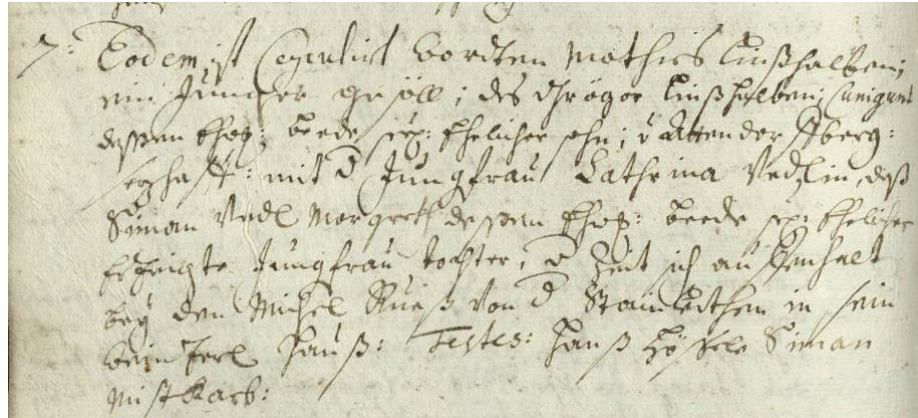 7: Eodem ist Copuliert worden Mathies Linßhalben;
ein Junger gesöll; des Gregor Linßhalben; Cunigund
dessen Ehew: beede see: Ehelicher sohn; v Attendorffberg:
seßhafft: mit d Jungfrau Cathrina Vedlin, deß
Simon Vedl Margreth dessen Ehew: beede see: Eheliche
Erzeigte Jungfrau tochter, d Zeit sich auffenhalt
bey den Michel Rueß von d Stainleithen in sein
Heusl hauß: Testes: hanß Simon
Mistkarb: